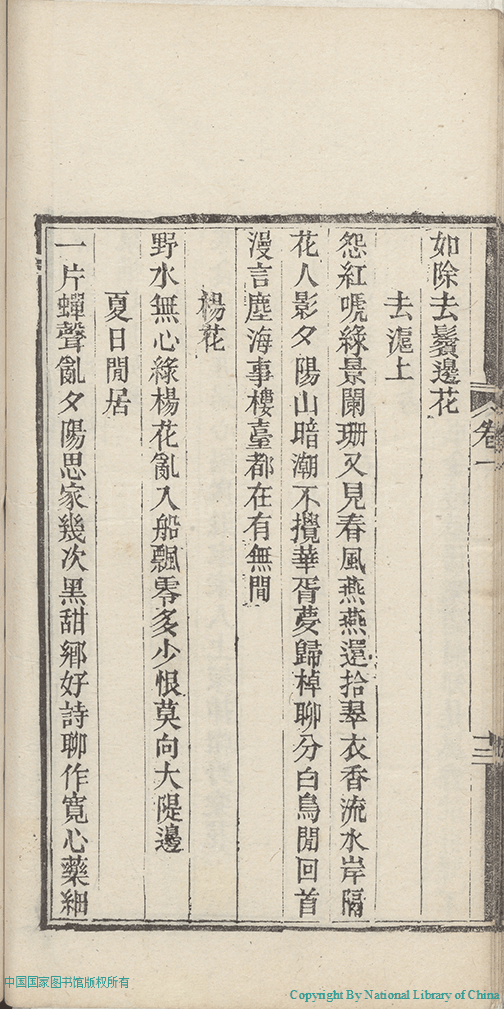 如除去鬢邊花
去滬上
怨紅唬綠景闌珊又見春風燕燕還拾翠衣香流水岸隔
花人影夕陽山暗潮不攪華胥夢歸棹聊分白鳥閒回首
漫言塵海事樓臺都在有無間
楊花
野水無心綠楊花亂入船飄零多少恨莫向大隄邊
夏日閒居
一片蟬聲亂夕陽思家幾次黑甜鄉好詩聊作寬心藥細
卷一
十三
中国国家图书馆版权所有
Copyright By National Library of China